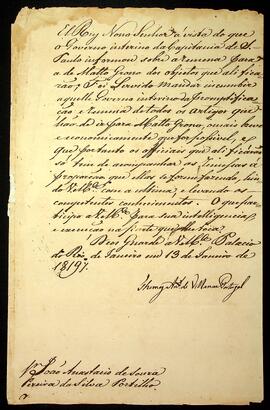 El Rey Nosso Senhor á vista do que
o Governo interino da Capitania de S.
Paulo informou sobre a remessa para
a de Matto Grosso dos objectos que ali fica
rão; Foi Servido mandar incumbir
aquelle Governo interino da promptifica
ção e remessa de todos os artigos que
hão de ir para Matto Grosso, mais breve
e economicamente que for possivel, e
que portanto os officiaes que ali ficárão
só tem de acompanhar as remessas á
proporção que ellas se forem fazendo,
com a ultima, e levando os
competentes conhecimentos. O que par
ticipo a V. M.ce para sua intelligencia,
e execução na parte que lhe toca.
Deos Guarde a V. M.ce Palacio
do Rio de Janeiro em 13 de Janeiro de
1819.
Thomaz Ant.º de Villanova Portugal
Snr. João Anastacio de Souza
Pereira da Silva Portilho.